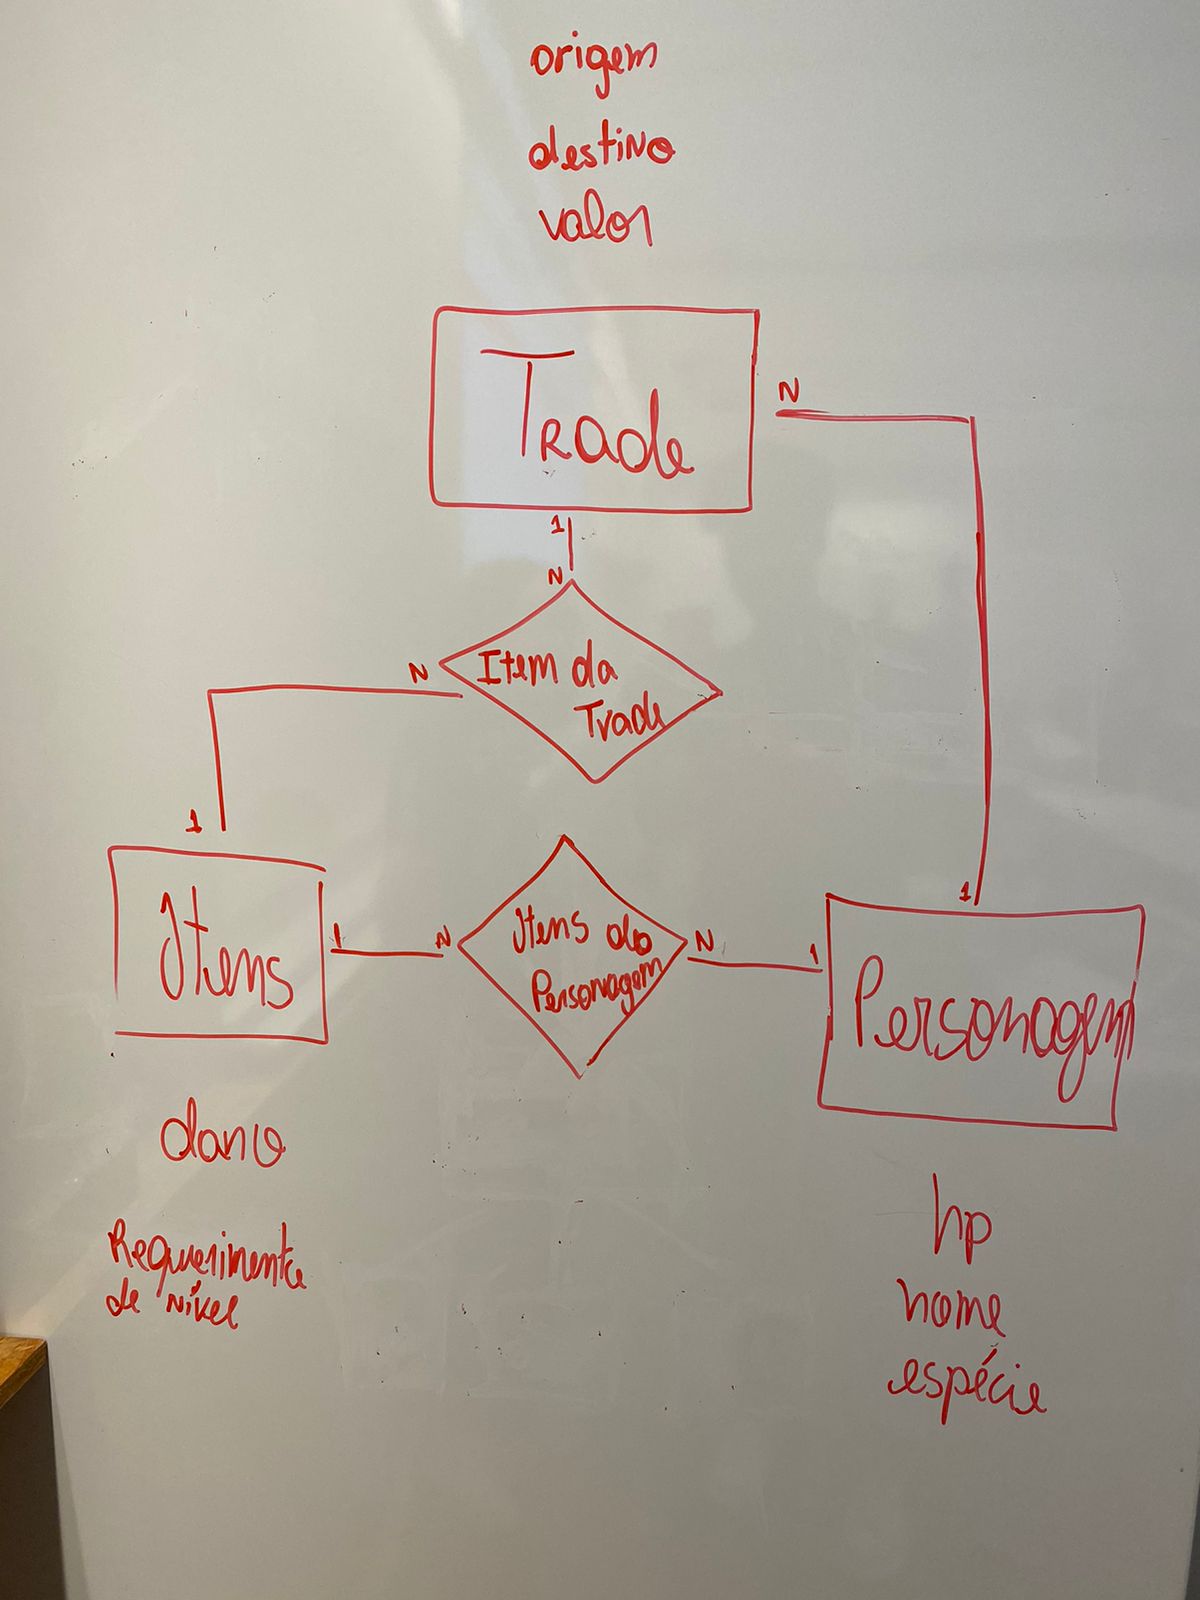 origem
destino
valor
Trade
N
1
N
N
Item da
Trade
1
1
Itens
1
N
Itens do
Personagem
N
1
Personagem
dano
Requerimento
de nível
hp
nome
espécie